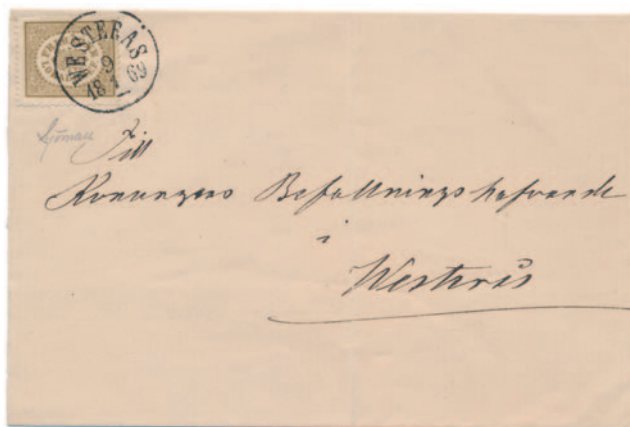 WESTERÅS
9
18 1 69
Till
Konungens Befallningshafvande
i
Westerås